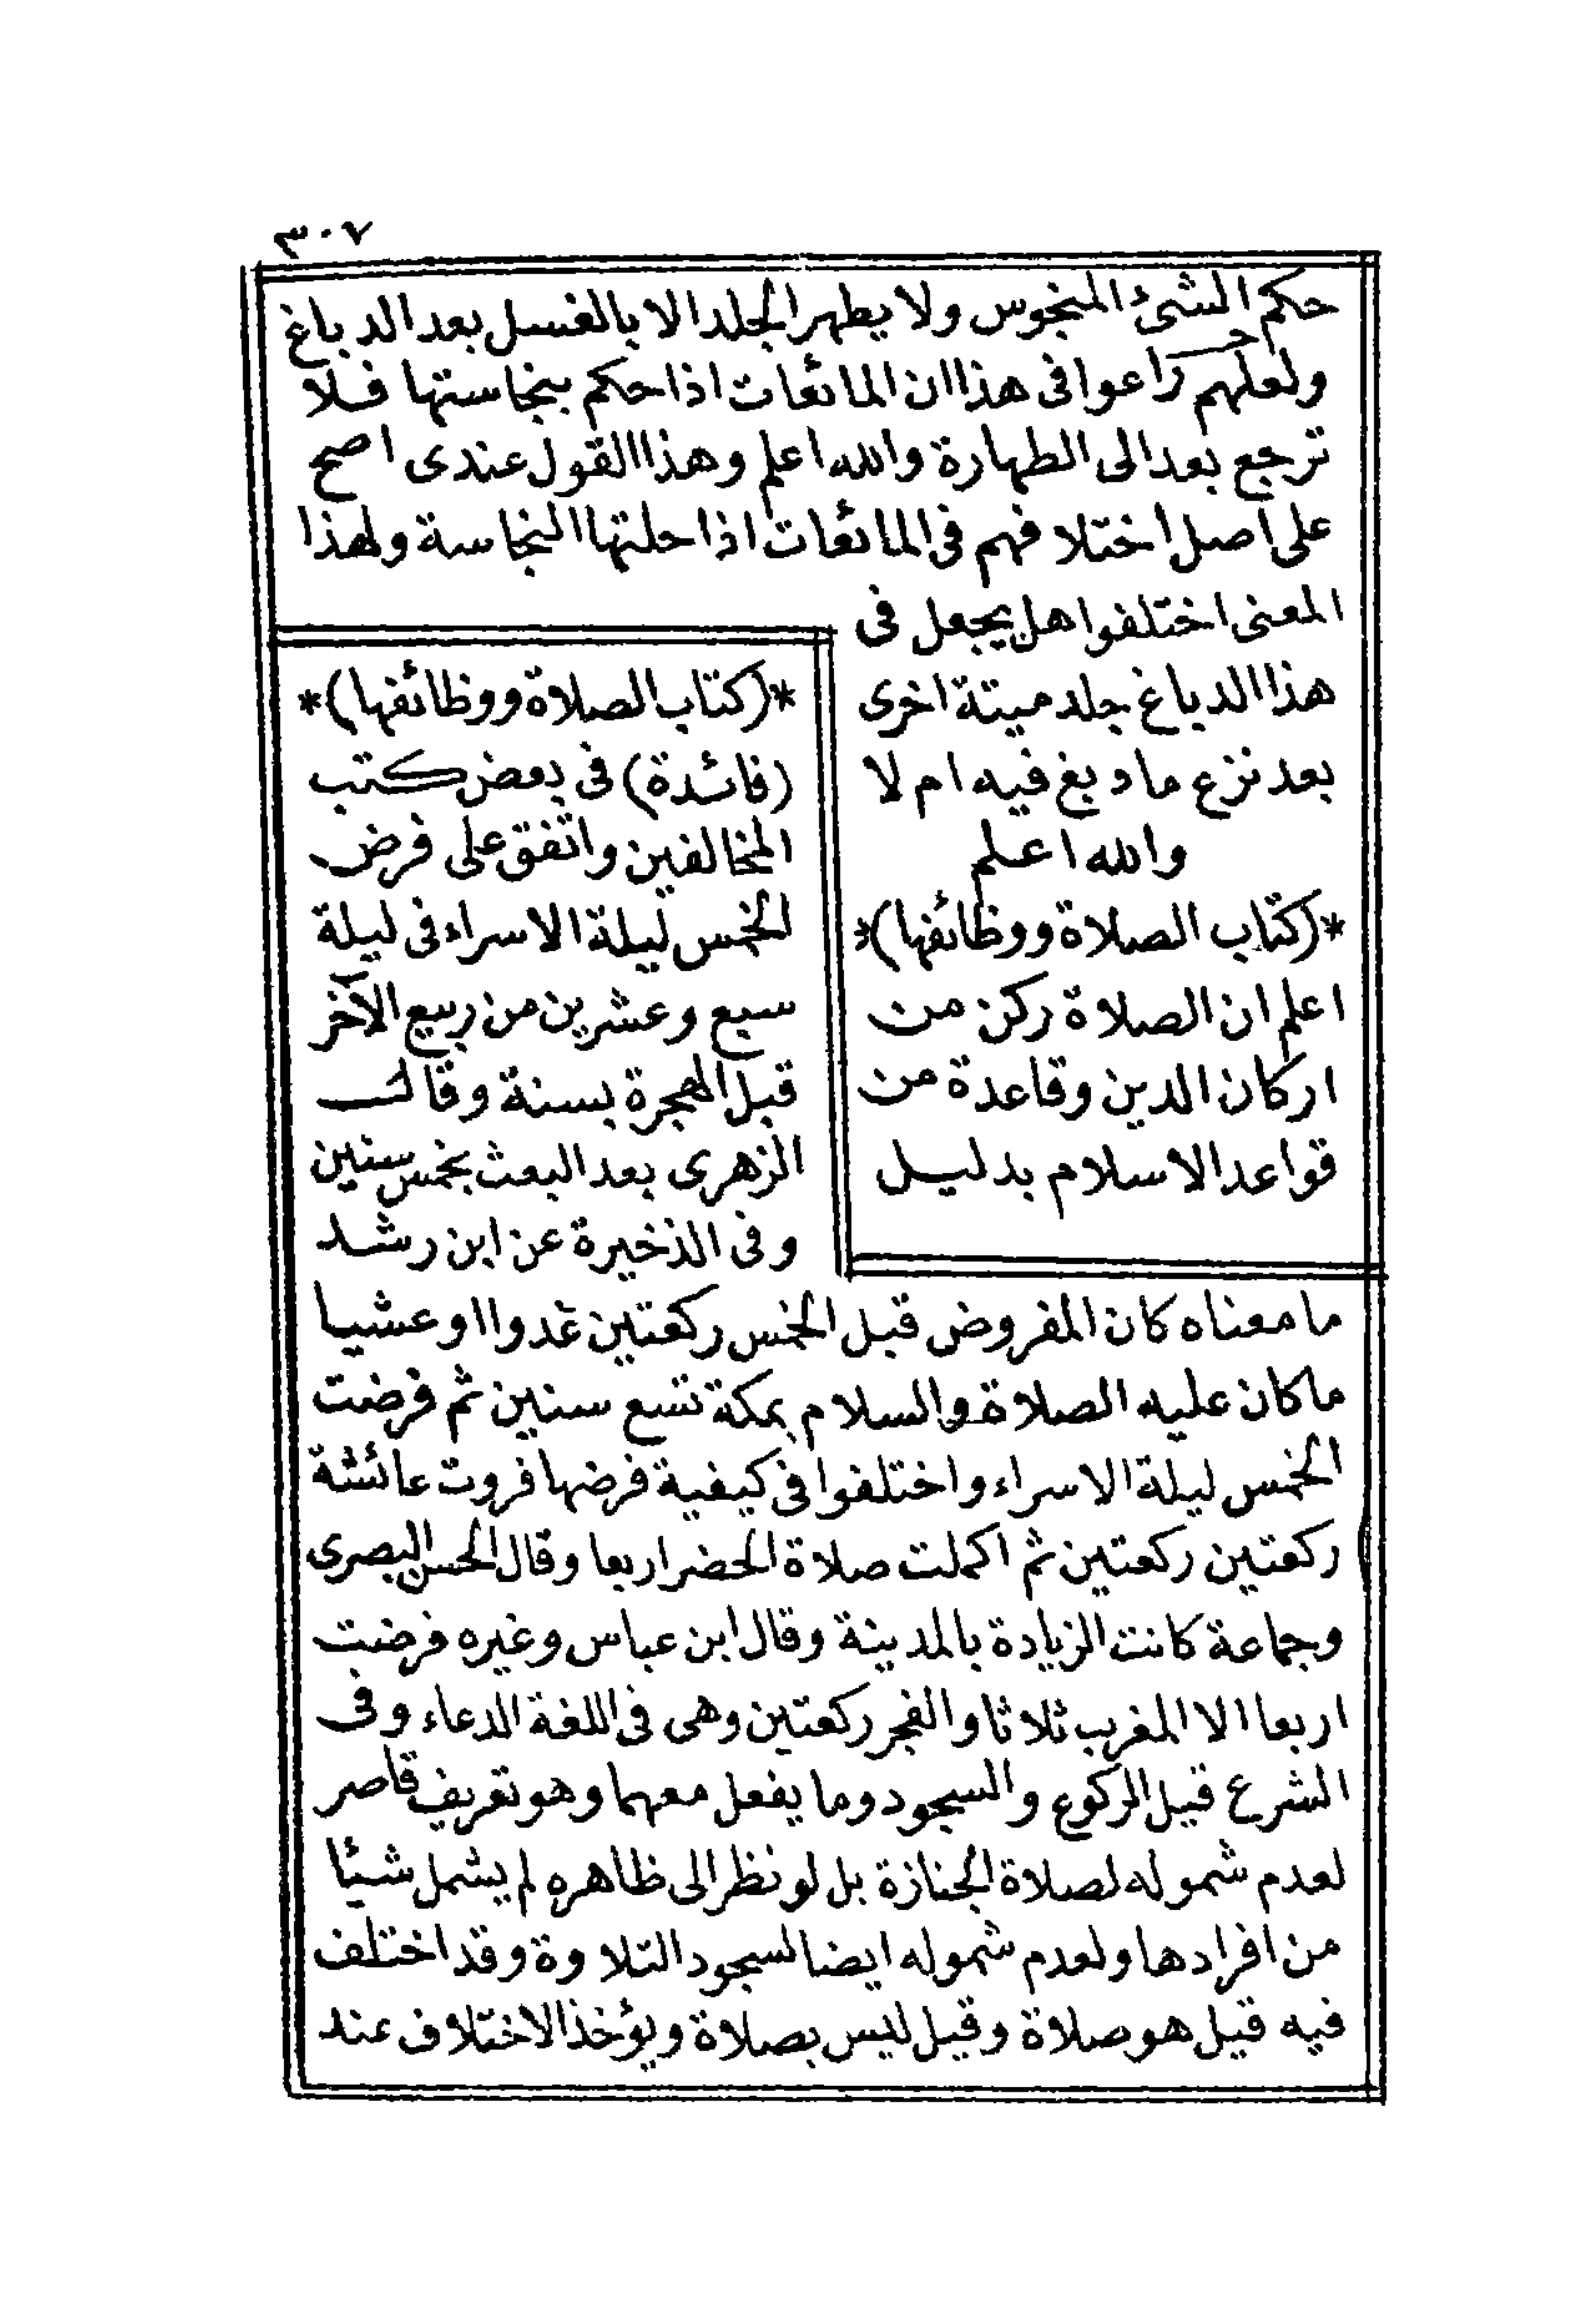 ٣٠٧
حكم الشئ المنجوس ولا يطهر الجلد الا بالغسل بعد الدباغ
ولعلهم راعوا فى هذا ان المائعات اذا حكم بنجاستها فلا
ترجع بعد الى الطهارة والله اعلم وهذا القول عندى اصح
على اصل اختلافهم فى المائعات اذا حلتها النجاسة ولهذا
المعنى اختلفوا هل يجعل فى
هذا الدباغ جلد ميتة اخرى
بعد نزع ما دبغ فيه ام لا
والله اعلم
*(كتاب الصلاة ووظائفها)*
اعلم ان الصلاة ركن من
اركان الدين وقاعدة من
قواعد الاسلام بدليل
*(كتاب الصلاة ووظائفها)*
(فائدة) فى بعض كتب
المخالفين واتفق على فرض
الخمس ليلة الاسراء فى ليلة
سبع وعشرين من ربيع الآخر
قبل الهجرة بسنة وقال
الزهرى بعد البعث بخمس سنين
وفى الذخيرة عن ابن رشد
ما معناه كان المفروض قبل الخمس ركعتين غدوا او عشيا
ما كان عليه الصلاة والسلام بمكة تسع سنين ثم فرضت
الخمس ليلة الاسراء واختلفوا فى كيفية فرضها فروت عائشة
ركعتين ركعتين ثم اكملت صلاة الحضر اربعا وقال الحسن البصرى
وجماعة كانت الزيادة بالمدينة وقال ابن عباس وغيره فرضت
اربعا الا المغرب ثلاثا والفجر ركعتين وهى فى اللغة الدعاء وفى
الشرع قيل الركوع والسجود وما يفعل معهما وهو تعريف قاصر
لعدم شموله لصلاة الجنازة بل لو نظر الى ظاهره لم يشمل شيئا
من افرادها ولعدم شموله ايضا لسجود التلاوة وقد اختلف
فيه قيل هو صلاة وقيل ليس بصلاة ويؤخذ الاختلاف عند